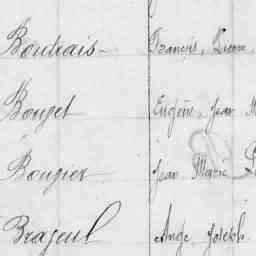 Boutrais - François, Pierre
Bouget Eugène, Jean M
Bougier Jean Marie
Brajeul Ange Joseph